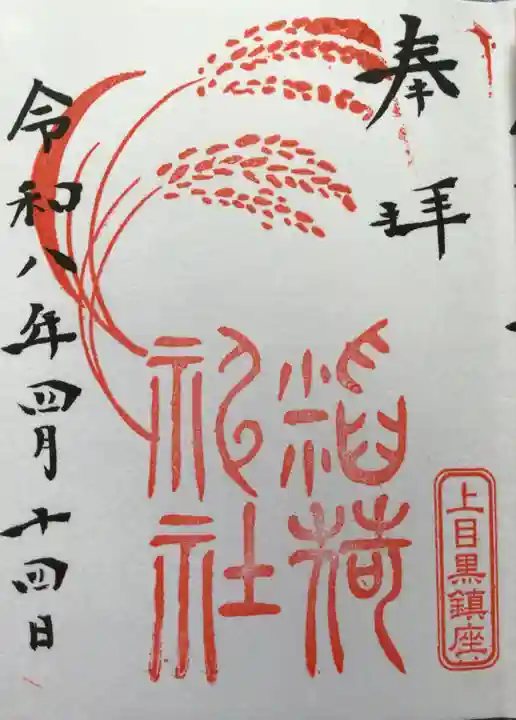 奉拝
上目黒鎮座
稲荷
神社
令和八年四月十四日